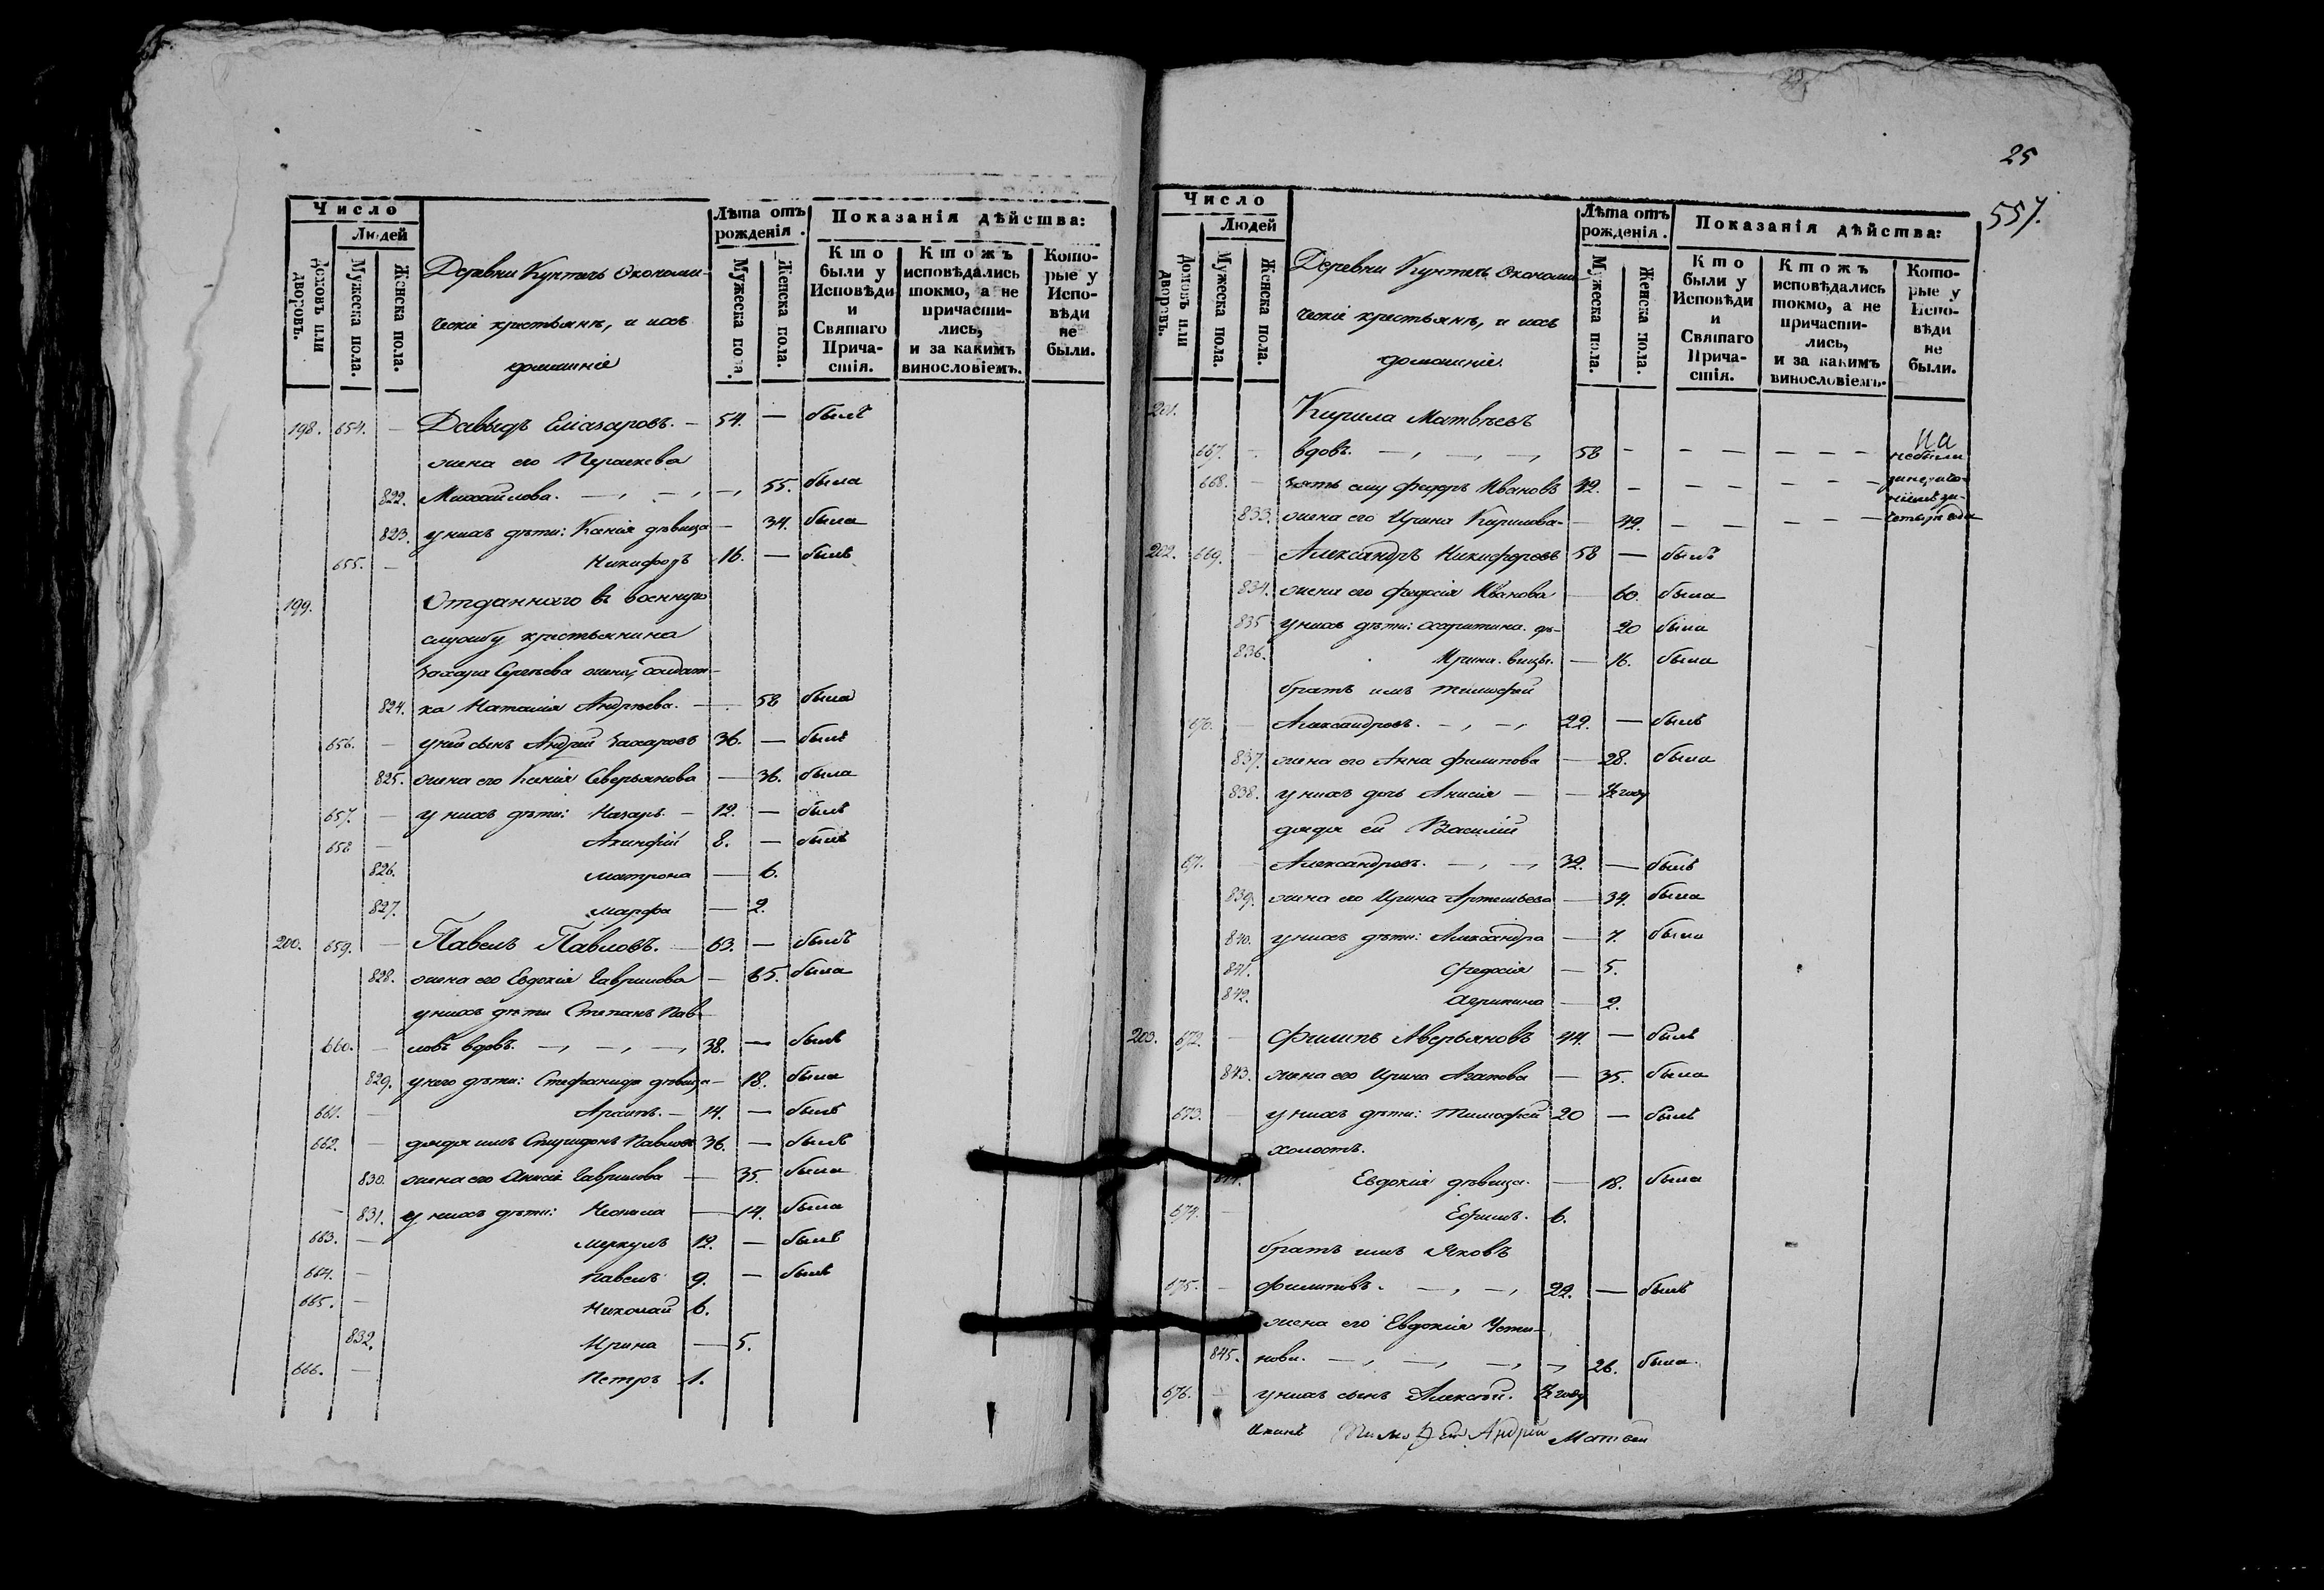 25
557.
Число
Людей
Домовъ или дворовъ.
Мужеска пола.
Женска пола.
Деревни Кунтечь Экономи-
ческіе крестьянѣ, и ихъ
домашніе
Лѣта отъ рожденія.
Мужеска пола.
Женска пола.
Показанія дѣйства:
Кто были у Исповѣди и Святаго Причастія.
Ктожъ исповѣдались токмо, а не причастились, и за какимъ винословіемъ.
Которые у Исповѣди не были.
198. 654. — Давыдъ Еліазаровъ. — 54. — былъ
жена его Параскева
822. Михайлова. — 55. была
823. у нихъ дѣти: Ксенія дѣвица — 34. была
655. — Никифоръ 16. — былъ
199. Отданнаго въ военную
службу крестьянина
Захара Сергѣева жена, солдат-
824. ка Наталія Андрѣева. — 58 была
656. — у ней сынъ Андрей Захаровъ 36. — былъ
825. жена его Ксенія Аверьянова — 36. была
657. — у нихъ дѣти: Назаръ — 12. — былъ
658 — Акинфій 8. — былъ
826. Матрона — 6.
827. Марфа — 2.
200. 659. — Павелъ Павловъ. — 63. — былъ
828. жена его Евдокія Гаврилова — 65. была
у нихъ дѣти Степанъ Пав-
660. — ловъ вдовъ. — 38. — былъ
829. у него дѣти: Стефанида дѣвица — 18. была
661. — Архипъ. — 14. — былъ
662. — дядя имъ Спиридонъ Павловъ 36. — былъ
830. жена его Анисія Гаврилова — 35. была
831. у нихъ дѣти: Неонила — 14. была
663. — Меркулъ 12. — былъ
664. — Павелъ 9. — былъ
665. — Николай 6.
832. Ирина — 5.
666. — Петръ 1.
Число
Людей
Домовъ или дворовъ.
Мужеска пола.
Женска пола.
Деревни Кунтечь Экономи-
ческіе крестьянѣ, и ихъ
домашніе.
Лѣта отъ рожденія.
Мужеска пола.
Женска пола.
Показанія дѣйства:
Кто были у Исповѣди и Святаго Причастія.
Ктожъ исповѣдались токмо, а не причастились, и за какимъ винословіемъ.
Которые у Исповѣди не были.
201. Кирила Матвѣевъ
667. — вдовъ. — 58 — — — — — — небыли
668. — зять ему Федоръ Ивановъ 42. — — — — — —
833. жена его Ирина Кирилова — 42. — — — — —
202. 669. — Александръ Никифоровъ 58 — былъ
834. жена его Федосія Иванова — 60. была
835 у нихъ дѣти: Харитина. дѣ- 20 была
836. Ирина. вицы. — 16. была
братъ имъ Тимофей
670. — Александровъ. — 22. — былъ
837. жена его Анна Филипова — 28. была
838. у нихъ дочь Анисія — — ½ году
дядя ей Василій
671. — Александровъ. — 32. — былъ
839. жена его Ирина Артемьева — 34. была
840. у нихъ дѣти: Александра — 7. была
841. Федосія — 5.
842. Агрипина — 2.
203. 672. — Филипъ Аверьяновъ 44. — былъ
843. жена его Ирина Агапова — 35. была
673. — у нихъ дѣти: Тимофей 20 — былъ
холостъ.
844. Евдокія дѣвица. — 18. была
674. — Ефимъ. 6.
братъ имъ Яковъ
675. — Филиповъ. — 22. — былъ
жена его Евдокія Усти-
845. нова. — 26. была.
676. — у нихъ сынъ Алексѣй. ½ году
Тимофей Андрей Матвей